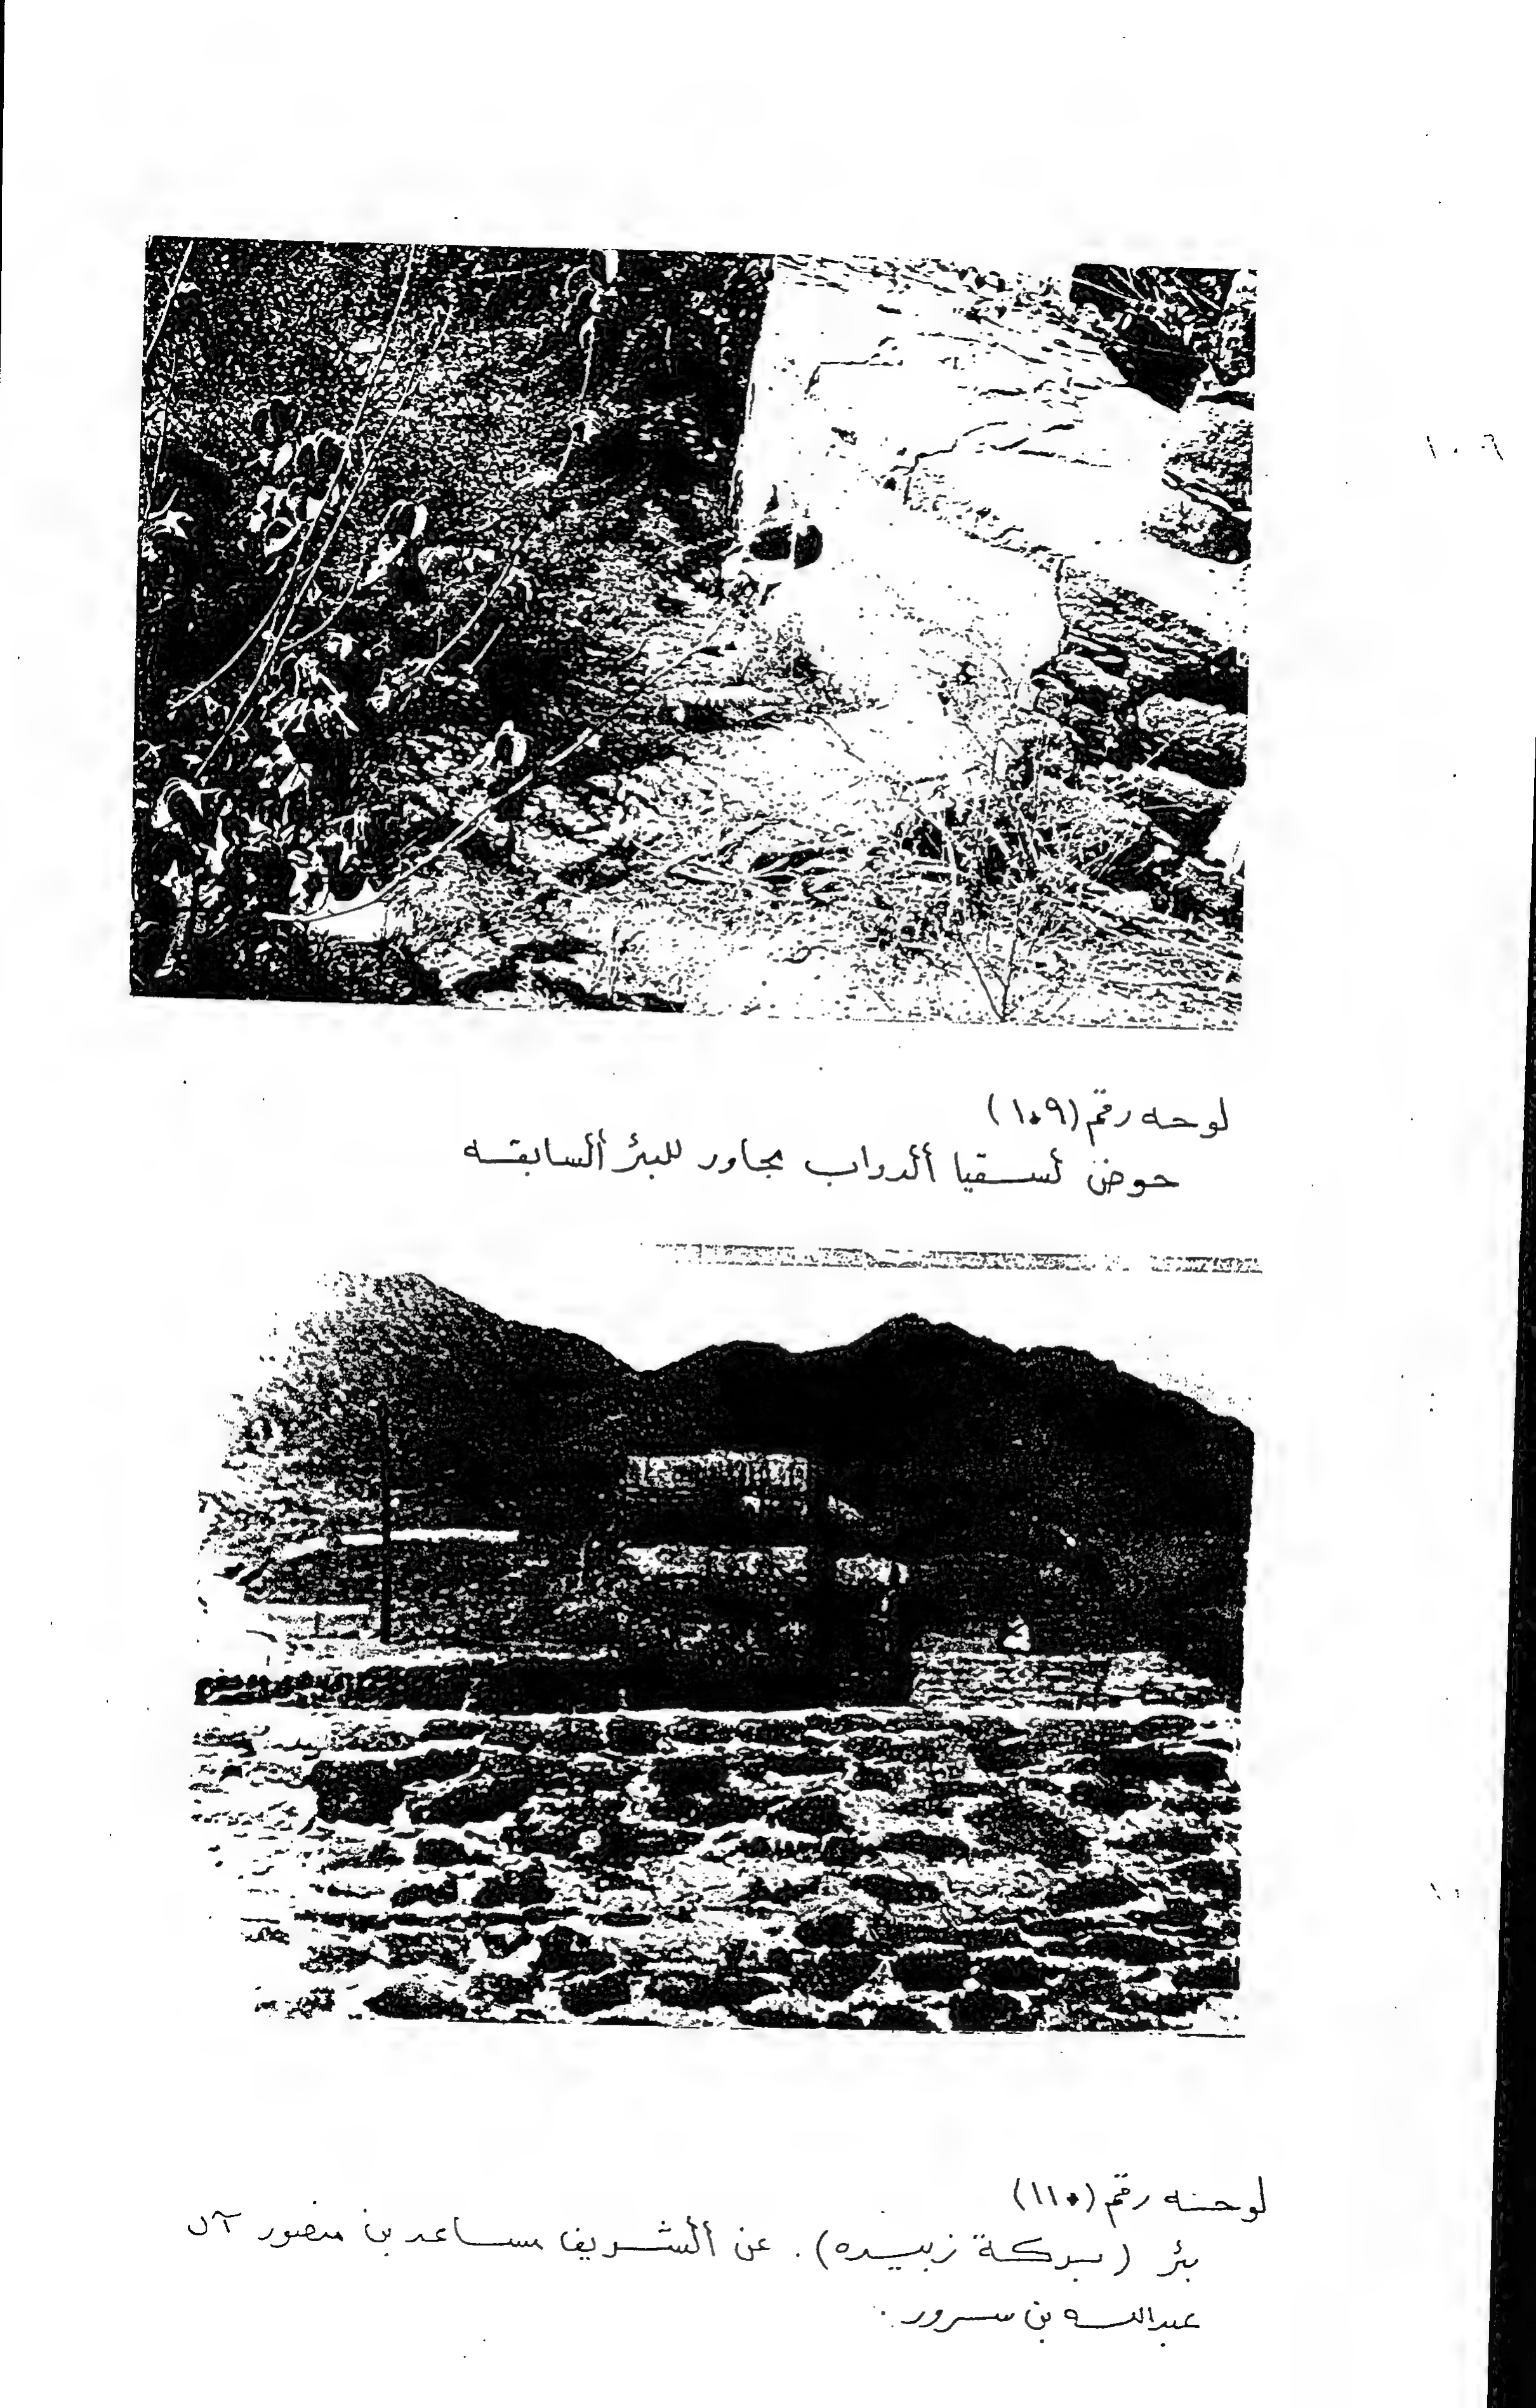 لوحه رقم (١٠٩)
حوض لسقيا الدواب مجاور للبئر السابقه
لوحه رقم (١١٠)
بئر (بركة زبيده). عن الشريف مساعد بن منصور آل
عبدالله بن سرور.